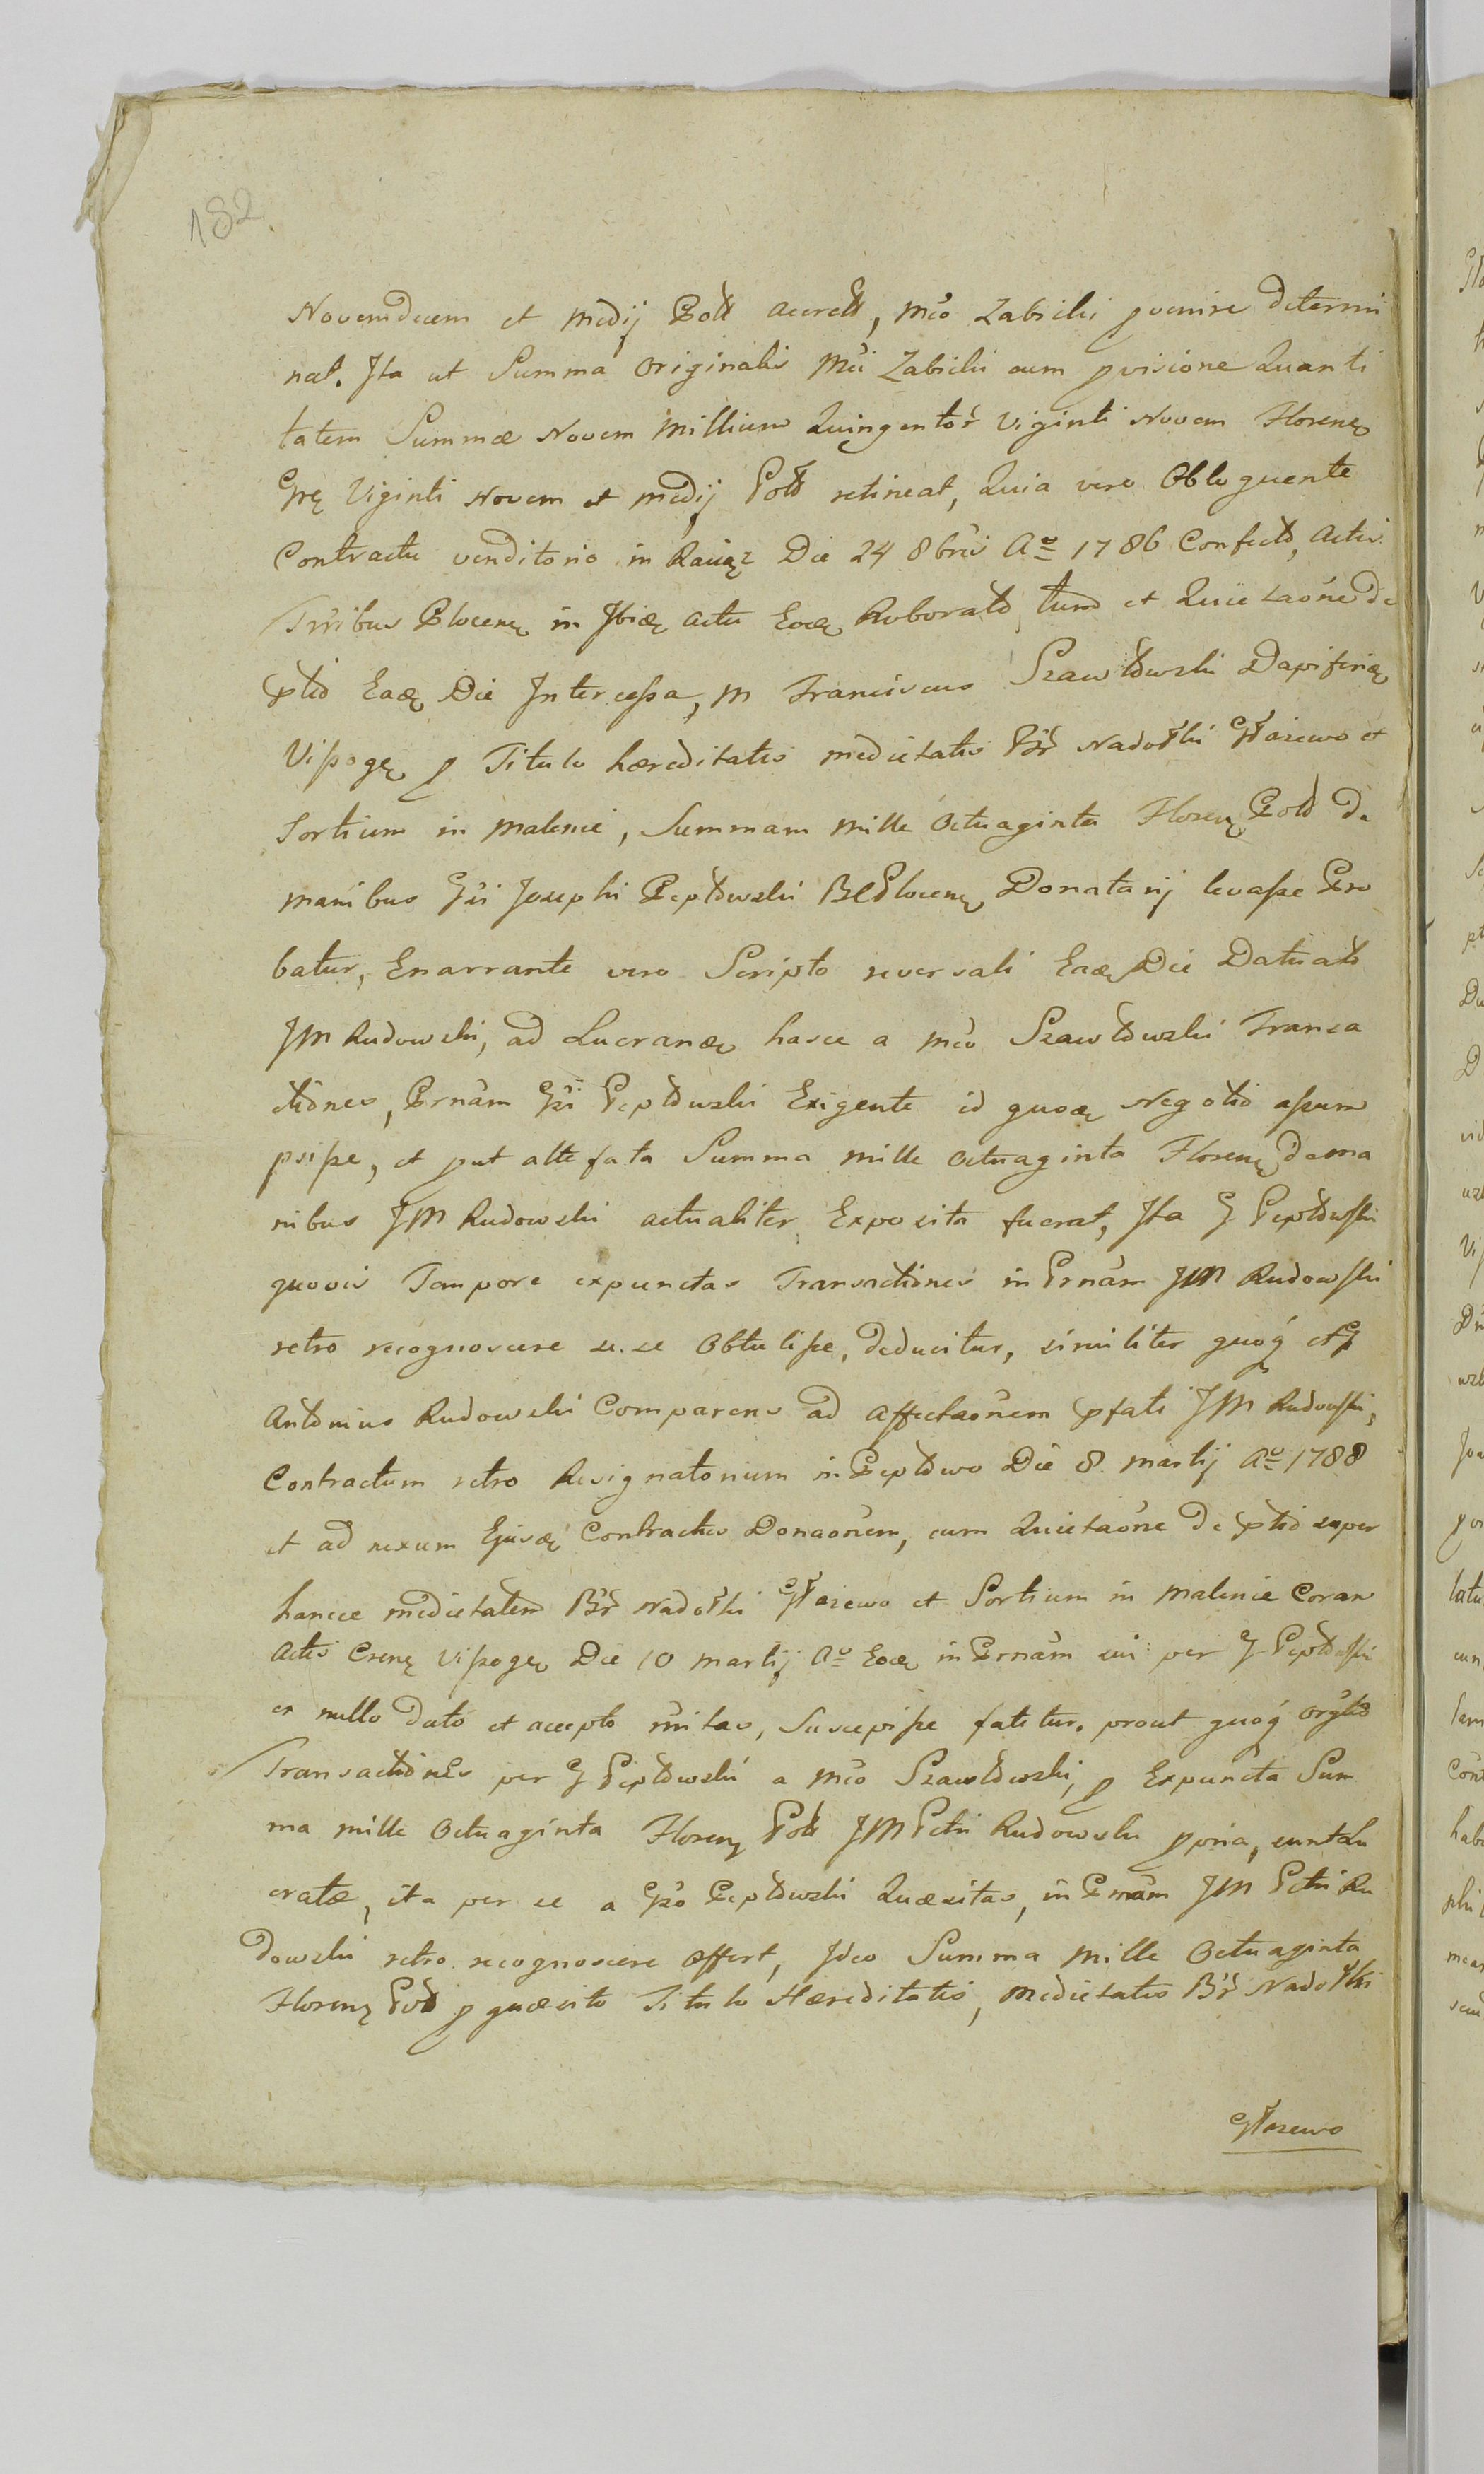 182.
Novemdecem et medij Poll accrell, Mco Zabicki pvenire determi
nat. Ita ut Summa originalis Mci Zabicki cum pvisione Quanti
tatem Summæ Novem Millium Quingentor Viginti Novem Floreng
Grę Viginti Novem et medij Poll retineat, Quia vero Obloquente
Contractu venditorio in Die 24 8bris Ao 1786 Confecto, Actis
Trribus Plocens in actu Eoq Roborato, tum et Quietaone de
ptio Eaq Die Intercessa, M Franciscus Szawłowski Dapiferiæ
Vissoge p Titulo hæreditatis medietatis Br Nadołki Głazewo et
Sortium in Malenie, Summam Mille Octuaginta Floren Poll de
manibus Gsi Josephi Pepłowski BCPlocens Donatarij levasse Pro
batur, Enarrante vero Scripto reversali Eaq Die Datuato
JM Rudowski, ad hasce a Mco Szawłowski Transa
ctiones, Prnam Gsi Pepłowski Exigente id quoq Negotio assum
psisse, et put attefata Summa Mille Octuaginta Floren de ma
nibus JM Rudowski actualiter Exposita fuerat, Ita G Pepłowski
quovis Tempore expunctas Transactiones in Prnam JM Rudowski
retro recognoscere se se Obtulisse, deducitur, similiter quoq et G
Antonius Rudowski Comparens ad affectaonem pfati JM Rudowski,
Contractum retro Resignatorium in Pepłowo Die 8 Martij Ao 1788
et ad nexum Ejusq Contractus Donaonem, cum Quietaone de ptio super
hancce medietatem Br Nadołki Głazewo et Sortium in Malenie Coram
Actis Crens Vissoge Die 10 Martij Ao Eoq in Prnam sui per G Pepłowski
ex nullo dato et accepto nitas, Suscepisse fatetur. prout quoq
Transactiones per G Pepłowski a Mco Szawłowski, p Expuncta Sum
ma mille Octuaginta Floren Poll JM Petri Rudowski ppria, sunt lu
cratæ, ita per se a Gso Pepłowski Quæsitas, in Prnam JM Petri Ru
dowski retro recognoscere offert, Ideo Summa Mille Octuaginta
Floren Poll p quæsito Titulo Hæreditatis, Medietatis Br Nadołki
Głazewo